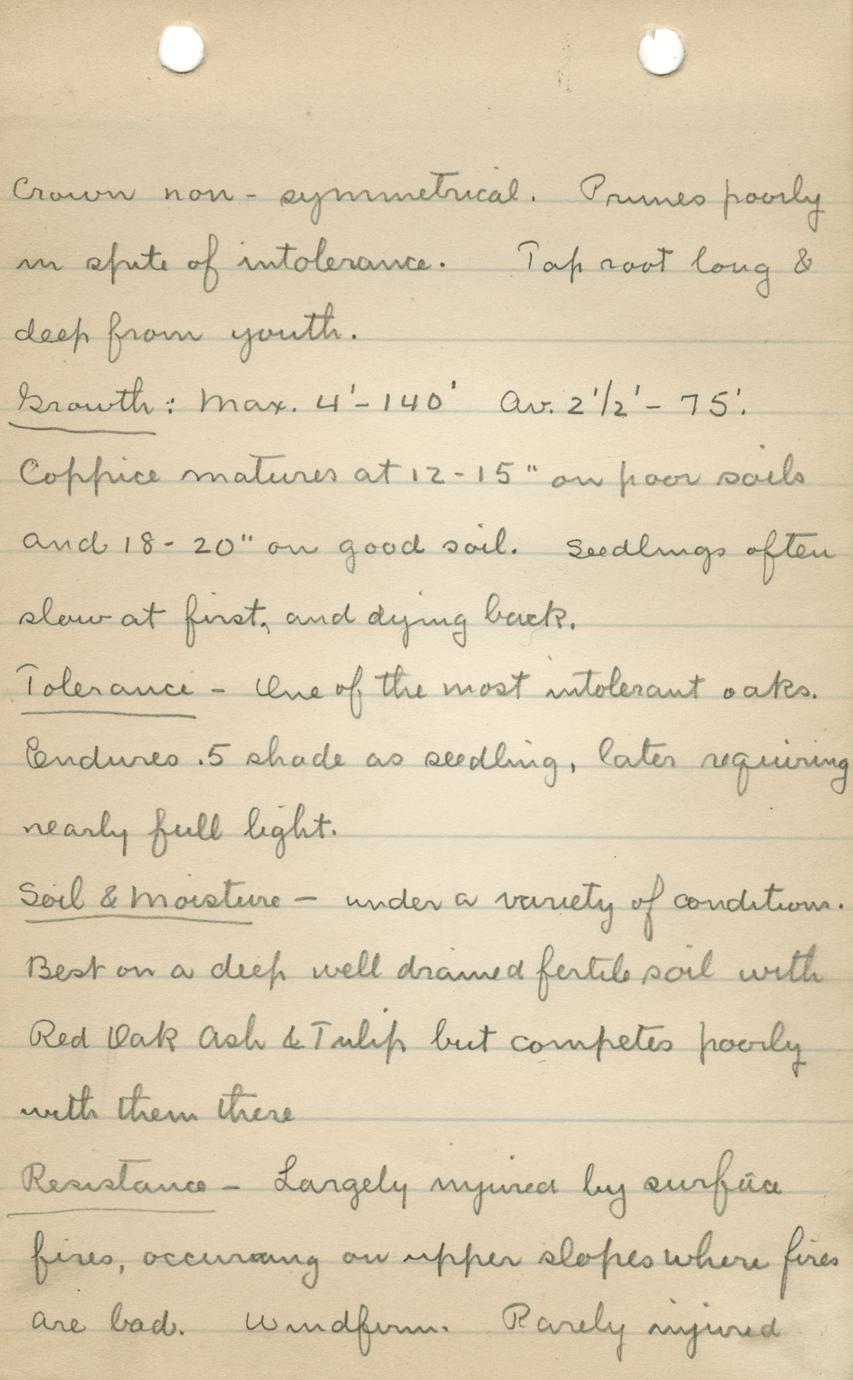 Crown non - symmetrical. Prunes poorly
in spite of intolerance. Tap root long &
deep from youth.
Growth: Max. 4'-140' Av. 2'1/2'- 75'.
Coppice matures at 12-15" on poor soils
and 18-20" on good soil. Seedlings often
slow at first, and dying back.
Tolerance - One of the most intolerant oaks.
Endures .5 shade as seedling, later requiring
nearly full light.
Soil & Moisture - under a variety of conditions.
Best on a deep well drained fertile soil with
Red Oak Ash & Tulip but competes poorly
with them there
Resistance - Largely injured by surface
fires, occurring on upper slopes where fires
are bad. Windfirm. Rarely injured